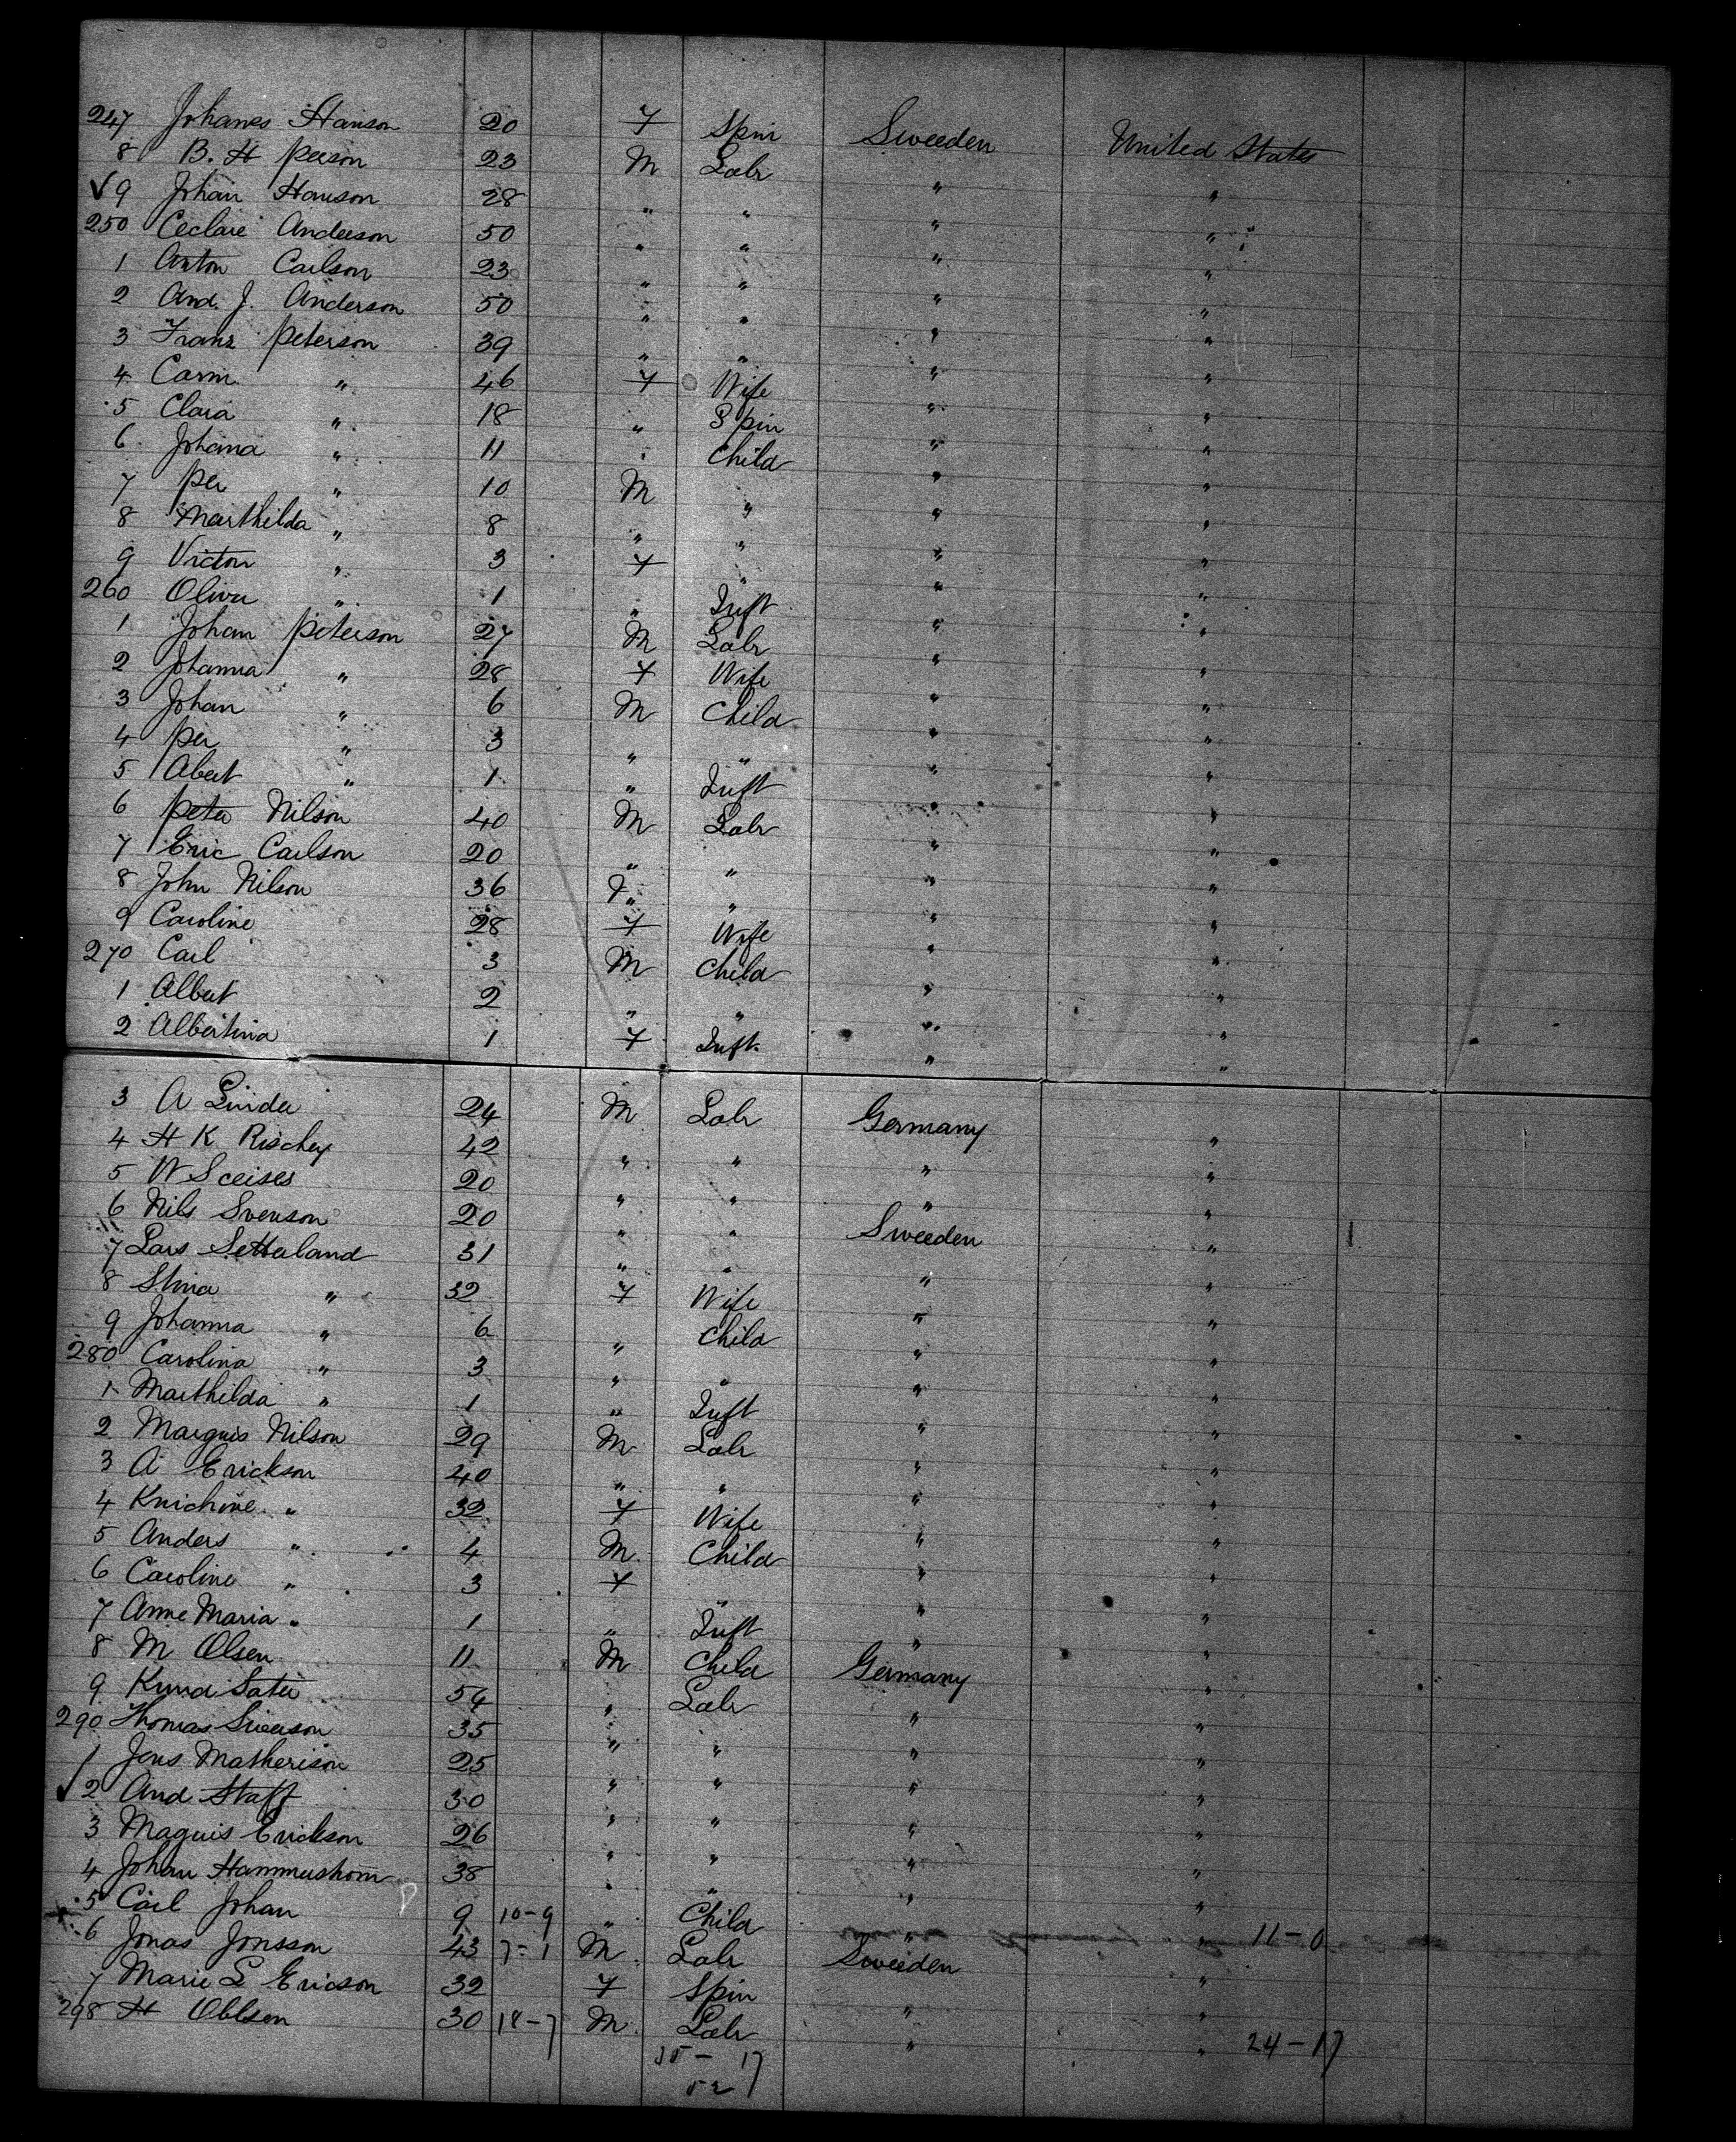 247 Johanes Hanson 20 F Spin Sweeden United States
8 B. H Person 23 M Labr " "
✓9 Johan Hanson 28 " " " "
250 Ceclaie Anderson 50 " " " "
1 Anton Carlson 23 " " " "
2 And. J. Anderson 50 " " " "
3 Franz Peterson 39 " " " "
4 Carin " 46 F Wife " "
5 Clara " 18 " Spin " "
6 Johana " 11 " Child " "
7 Per " 10 M " " "
8 Marthilda " 8 " " " "
9 Victor " 3 F " " "
260 Oliver " 1 " Inft " "
1 Johan Peterson 27 M Labr " "
2 Johanna " 28 F Wife " "
3 Johan " 6 M Child " "
4 Per " 3 " " " "
5 Abert " 1 " Inft " "
6 Peter Nilson 40 M Labr " "
7 Eric Carlson 20 " " " "
8 John Nilson 36 " " " "
9 Caroline 28 F Wife " "
270 Carl 3 M Child " "
1 Albert 2 " " " "
2 Albertina 1 F Inft " "
3 A Linder 24 M Labr Germany "
4 H K Rischey 42 " " " "
5 W Sceises 20 " " " "
6 Nils Svenson 20 " " Sweeden "
7 Lars Setterland 31 " " " "
8 Stina " 32 F Wife " "
9 Johanna " 6 " Child " "
280 Carolina " 3 " " " "
1 Marthilda " 1 " Inft " "
2 Marquis Nilson 29 M Labr " "
3 A Erickson 40 " " " "
4 Knichine " 32 F Wife " "
5 Anders " 4 M Child " "
6 Caroline " 3 F " " "
7 Anne Maria " 1 " Inft " "
8 M Olsen 11 M Child Germany "
9 Knud Sater 54 " Labr " "
290 Thomas Siverson 35 " " " "
1 Jens Matherison 25 " " " "
✓2 And Staff 30 " " " "
3 Maquis Erickson 26 " " " "
4 Johan Hammershom 38 " " " "
5 Carl Johan 9 10-9 " Child " " 11-0
6 Jonas Jonsson 43 7-1 M Labr Sweeden "
7 Marie L Ericson 32 F Spin " "
298 H Ohlsen 30 18-7 M Labr " " 24-17
35- 17
52